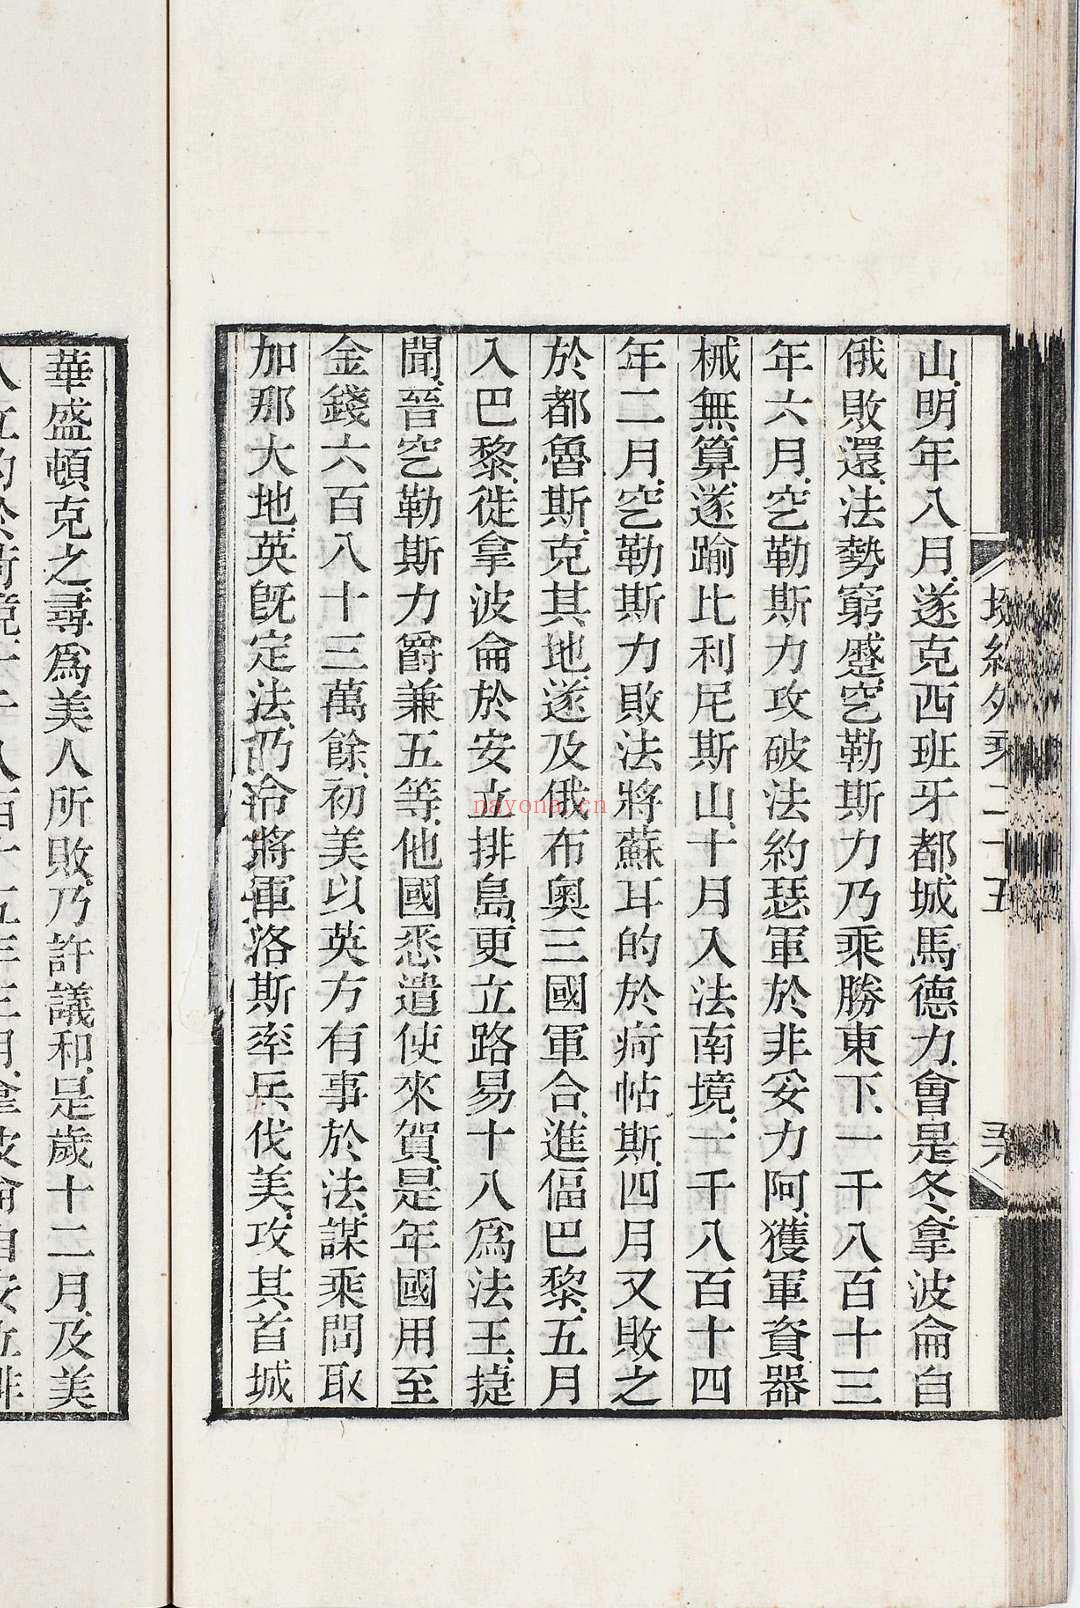 山明年八月遂克西班牙都城馬德力會是冬拿波侖自
俄敗還法勢窮蹙空勒斯力乃乘勝東下一千八百十三
年六月空勒斯力攻破法約瑟軍於非妥力阿獲軍資器
械無算遂踰比利尼斯山十月入法南境一千八百十四
年二月空勒斯力敗法將蘇耳的於疴帖斯四月又敗之
於都魯斯克其地遂及俄布奧三國軍合進偪巴黎五月
入巴黎徙拿波侖於安立排島更立路易十八爲法王㨗
聞晉空勒斯力爵兼五等他國悉遣使來賀是年國用至
金錢六百八十三萬餘初美以英方有事於法謀乘間取
加那大地英旣定法乃泠將軍洛斯率兵伐美攻其首城
華盛頓克之尋爲美人所敗乃許議和是歲十二月及美
nayona.cn